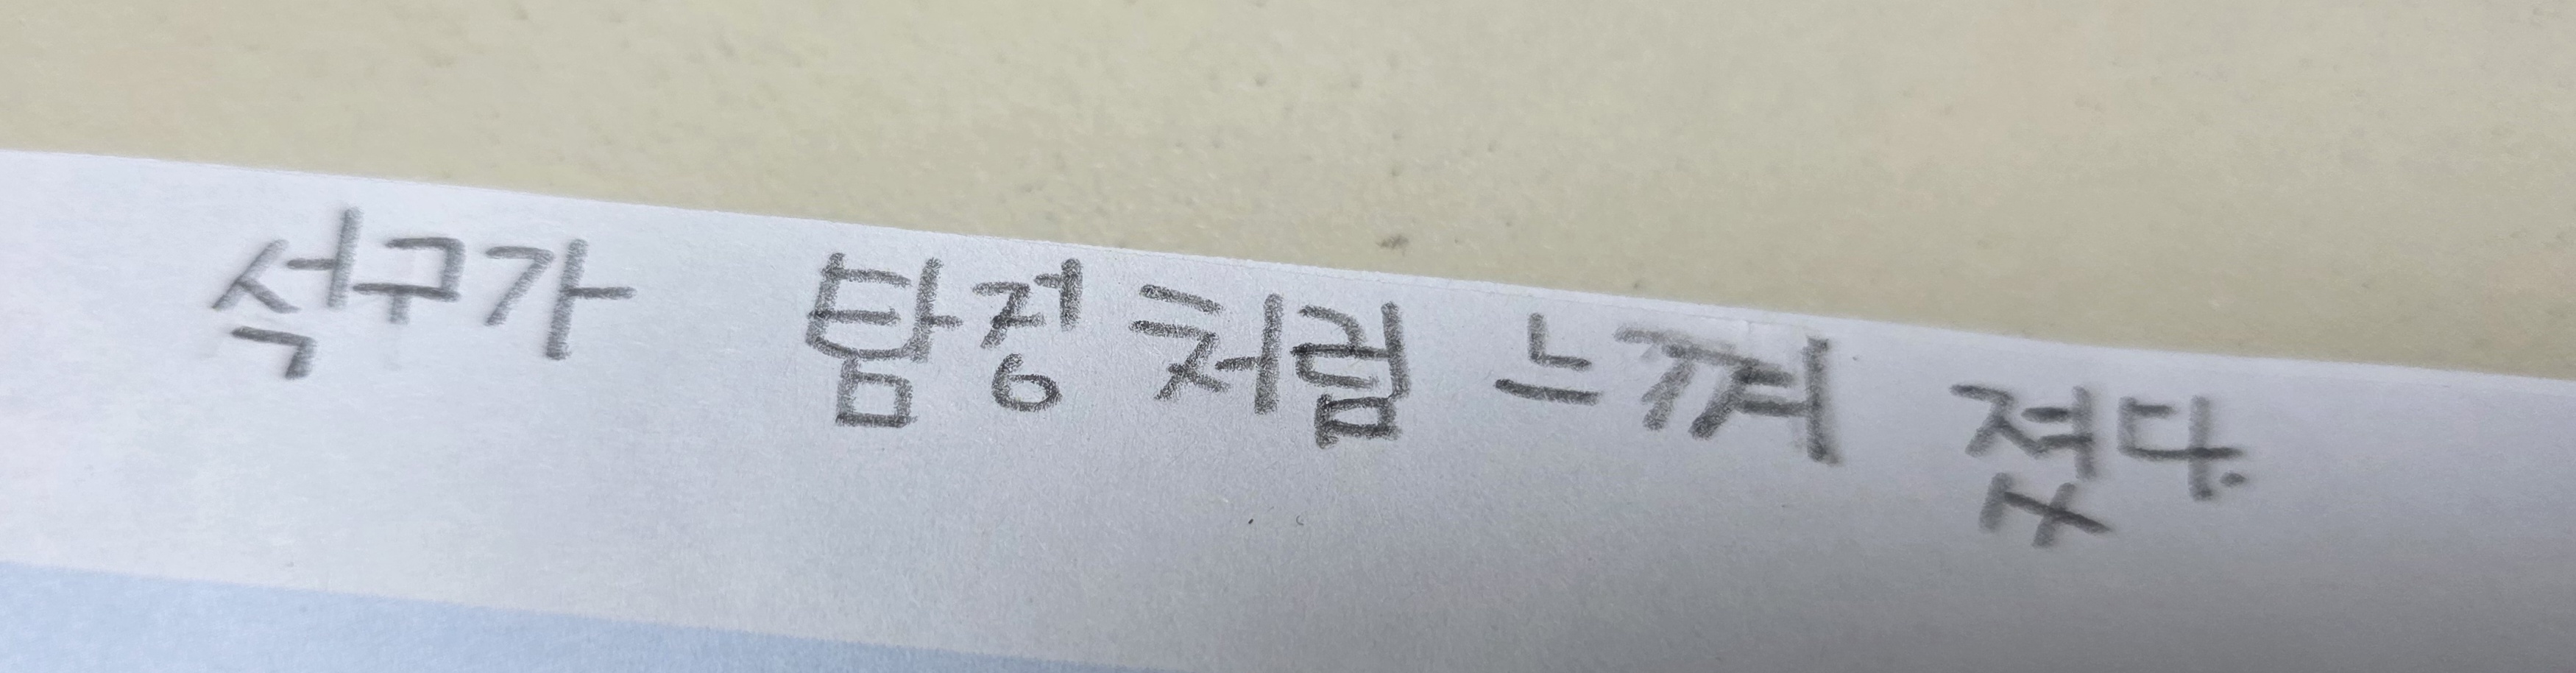 석구가 탐정처럼 느껴 졌다.